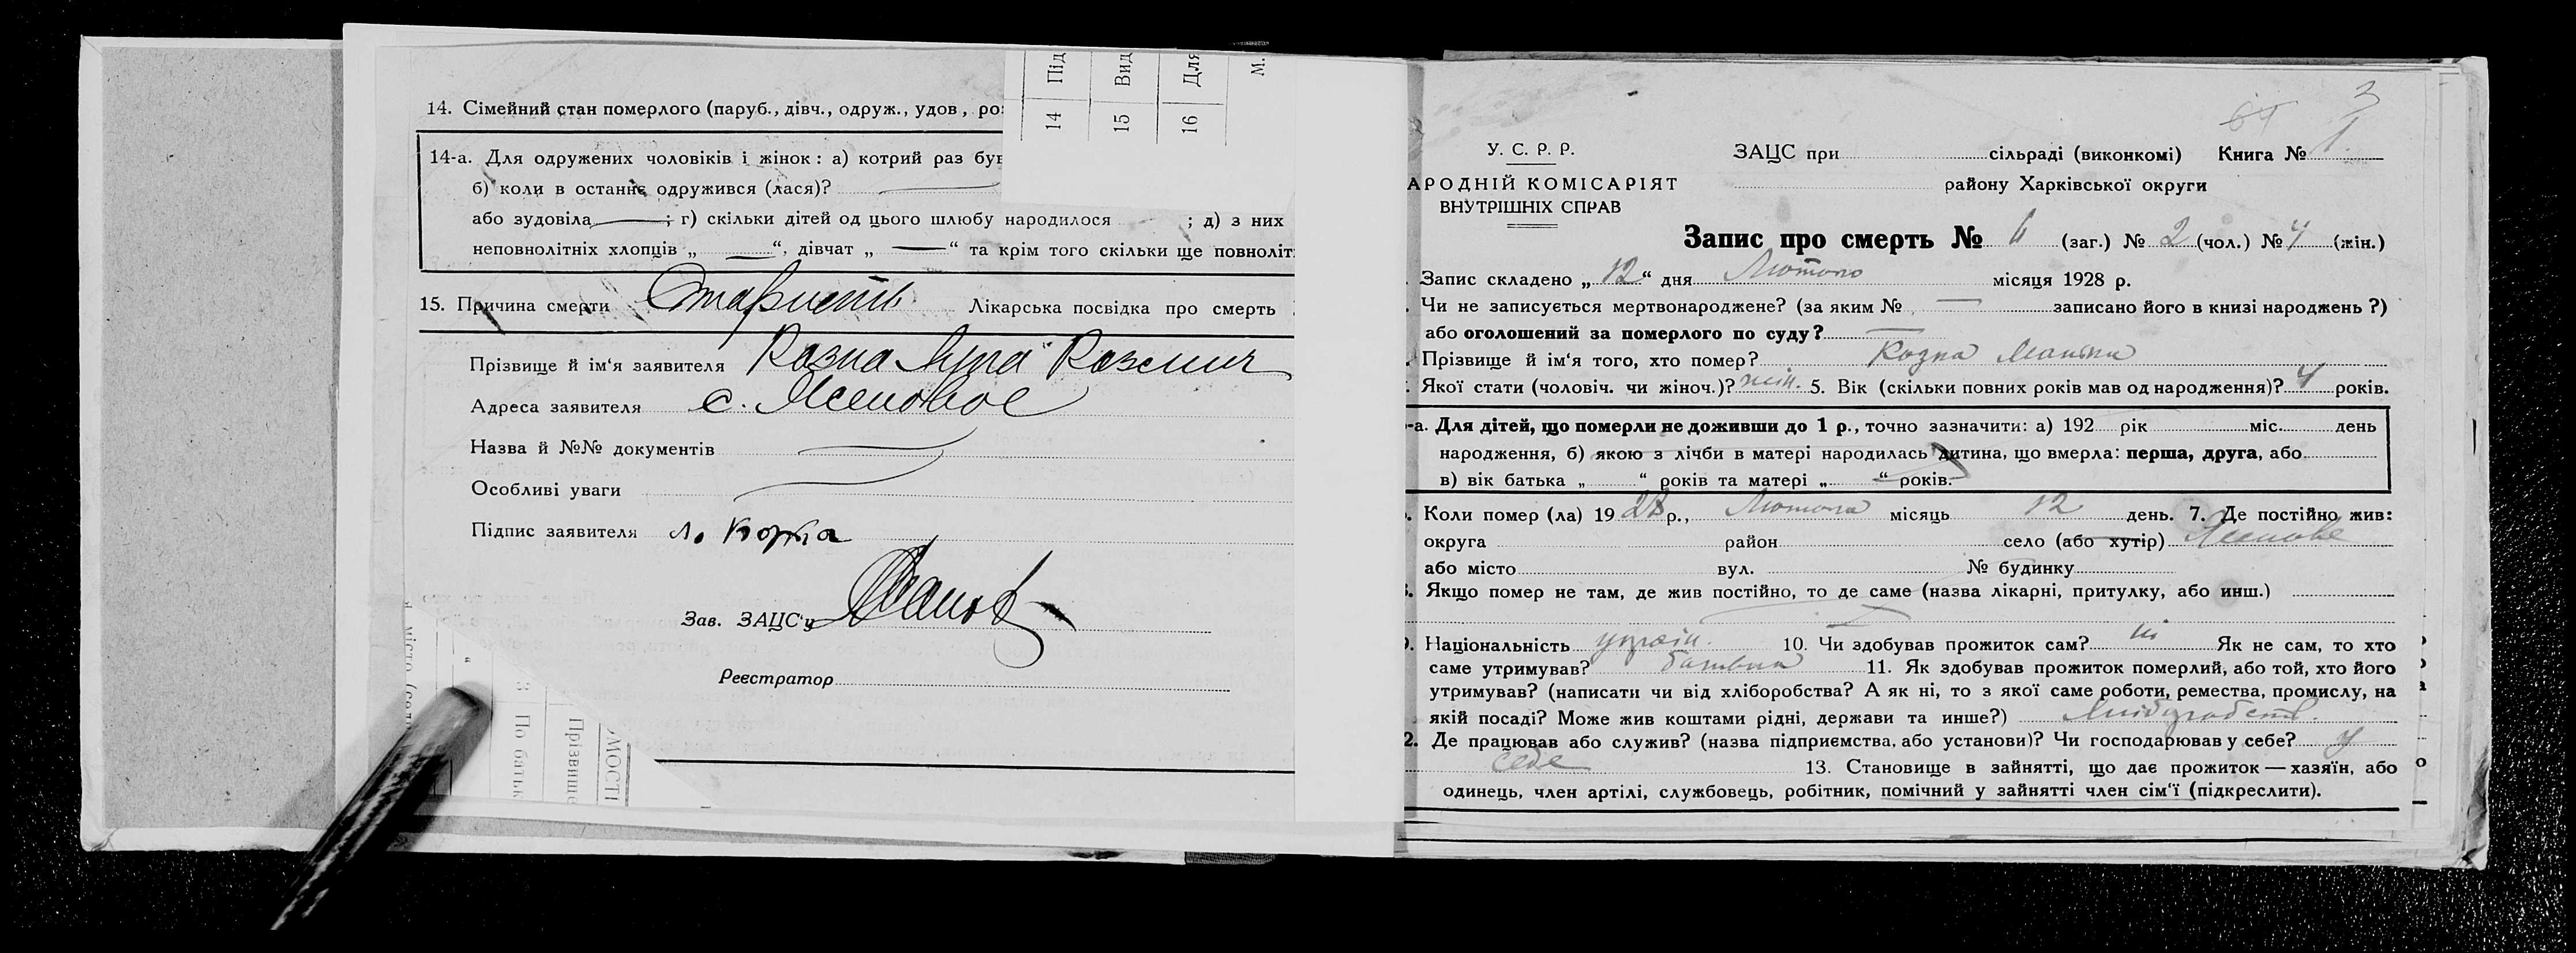 14. Сімейний стан померлого (паруб., дівч., одруж., удов,
14-а. Для одружених чоловіків і жінок: а) котрий раз
б) коли в останнє одружився (лася)?
або зудовіла ; г) скільки дітей од цього шлюбу народилося ; д) з них
неповнолітніх хлопців „ “, дівчат „ “ та крім того скільки ще
15. Причина смерти Старість Лікарська посвідка про смерть
Прізвище й ім‘я заявителя Козка
Адреса заявителя с. Ясеновое
Назва й №№ документів
Особливі уваги
Підпис заявителя Л. Козка
Зав. ЗАЦС‘у
Реєстратор
14 Під
15 Вид
16 Для
М.
По
Прізвище
У. С. Р. Р.
ВНУТРІШНІХ СПРАВ
ЗАЦС при сільраді (виконкомі) Книга № 1.
району Харківської округи
3
Запис про смерть № 6 (заг.) № 2 (чол.) № 4 (жін.)
Запис складено „12“ дня Лютого місяця 1928 р.
Чи не записується мертвонароджене? (за яким № — записано його в книзі народжень ?)
або оголошений за померлого по суду? —
Прізвище й ім‘я того, хто помер? Козка
Якої стати (чоловіч. чи жіноч.)? жін. 5. Вік (скільки повних років мав од народження)? 4 років.
-а. Для дітей, що померли не доживши до 1 р., точно зазначити: а) 192 рік міс. день
народження, б) якою з лічби в матері народилась дитина, що вмерла: перша, друга, або
в) вік батька „ “ років та матері „ “ років.
Коли помер (ла) 1928 р., Лютого місяць 12 день. 7. Де постійно жив:
округа район село (або хутір) Ясенове
або місто вул. № будинку
Якщо помер не там, де жив постійно, то де саме (назва лікарні, притулку, або инш.)
Національність україн. 10. Чи здобував прожиток сам? ні Як не сам, то хто
саме утримував? батько 11. Як здобував прожиток померлий, або той, хто його
утримував? (написати чи від хліборобства? А як ні, то з якої саме роботи, ремества, промислу, на
якій посаді? Може жив коштами рідні, держави та инше?)
2. Де працював або служив? (назва підприємства, або установи)? Чи господарював у себе? у
себе 13. Становище в зайнятті, що дає прожиток — хазяїн, або
одинець, член артілі, службовець, робітник, помічний у зайнятті член сім‘ї (підкреслити).